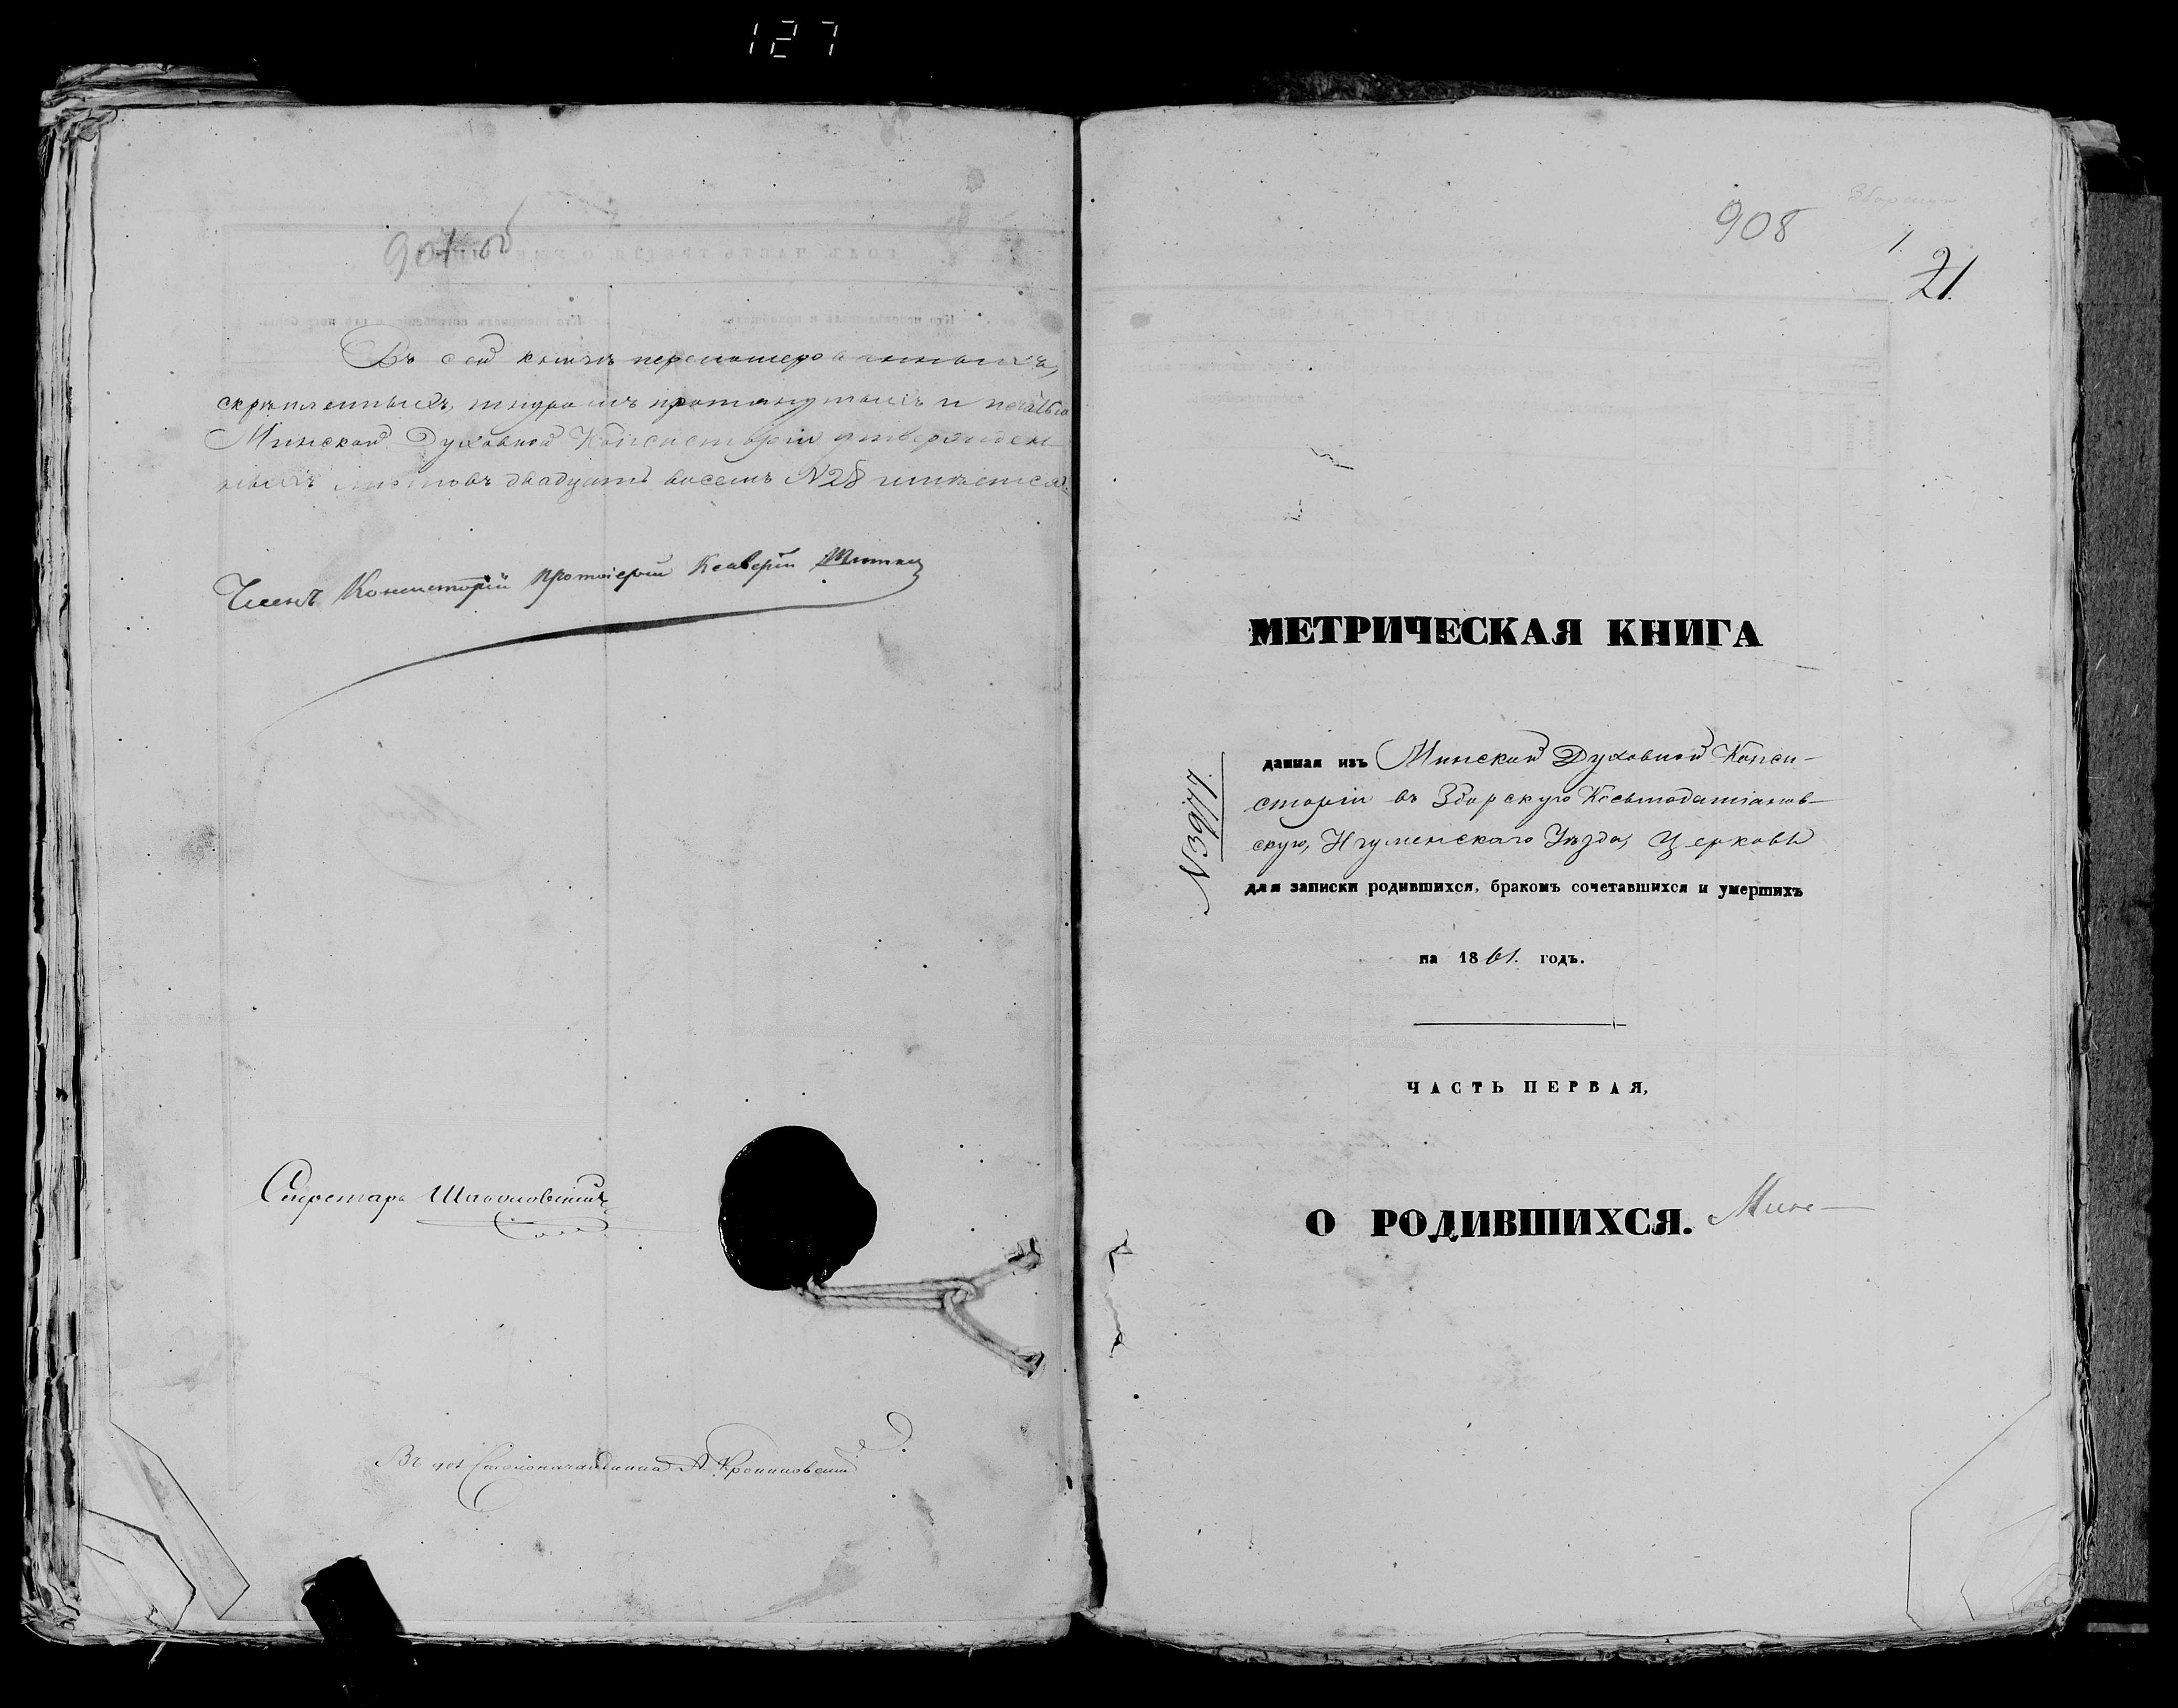 127
907 об
Въ сей книгѣ перенумерованныхъ,
скрѣпленныхъ, шнуромъ протянутыхъ и печатью
Минской Духовной Консисторіи утвержден-
ныхъ листовъ двадцать восемь N28 имѣется.
Членъ Консисторіи Протоіерей Ксаверій
Секретарь
Въ Столоначальника А.
908
1.
21.
МЕТРИЧЕСКАЯ КНИГА
N3977.
данная изъ Минской Духовной Конси-
сторіи въ Збарскую Косьмодаміанов-
скую, Игуменскаго Уѣзда, Церковь
для записки родившихся, бракомъ сочетавшихся и умершихъ
на 1861. годъ.
ЧАСТЬ ПЕРВАЯ,
О РОДИВШИХСЯ.